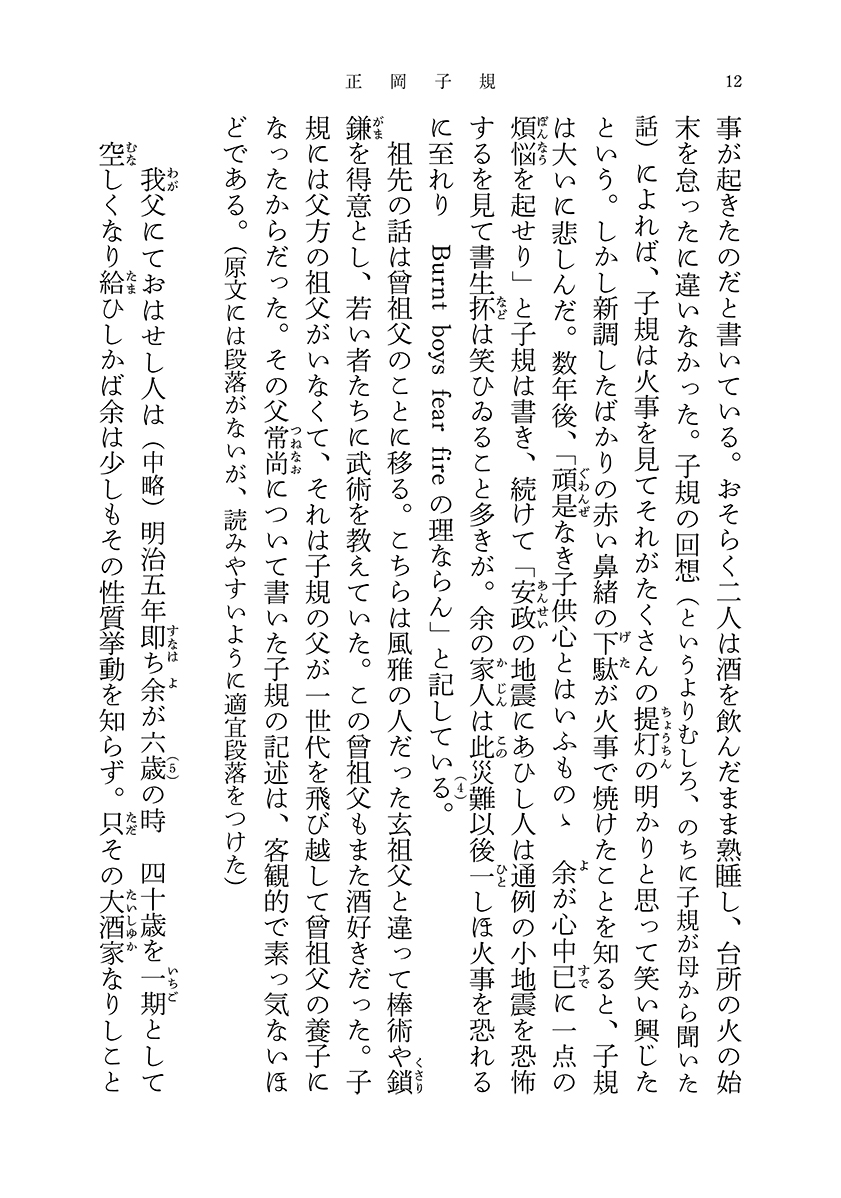 正岡子規
12
事が起きたのだと書いている。おそらく二人は酒を飲んだまま熟睡し、台所の火の始
末を怠ったに違いなかった。子規の回想（というよりむしろ、のちに子規が母から聞いた
話）によれば、子規は火事を見てそれがたくさんの提灯の明かりと思って笑い興じた
という。しかし新調したばかりの赤い鼻緒の下駄が火事で焼けたことを知ると、子規
は大いに悲しんだ。数年後、「頑是なき子供心とはいふものゝ　余が心中已に一点の
煩悩を起せり」と子規は書き、続けて「安政の地震にあひし人は通例の小地震を恐怖
するを見て書生抔は笑ひゐること多きが。余の家人は此災難以後一しほ火事を恐れる
に至れり　Burnt boys fear fire の理ならん」と記している。(4)
祖先の話は曾祖父のことに移る。こちらは風雅の人だった玄祖父と違って棒術や鎖
鎌を得意とし、若い者たちに武術を教えていた。この曾祖父もまた酒好きだった。子
規には父方の祖父がいなくて、それは子規の父が一世代を飛び越して曾祖父の養子に
なったからだった。その父常尚について書いた子規の記述は、客観的で素っ気ないほ
どである。（原文には段落がないが、読みやすいように適宜段落をつけた）
我父にておはせし人は（中略）明治五年即ち余が六歳(5)の時　四十歳を一期として
空しくなり給ひしかば余は少しもその性質挙動を知らず。只その大酒家なりしこと